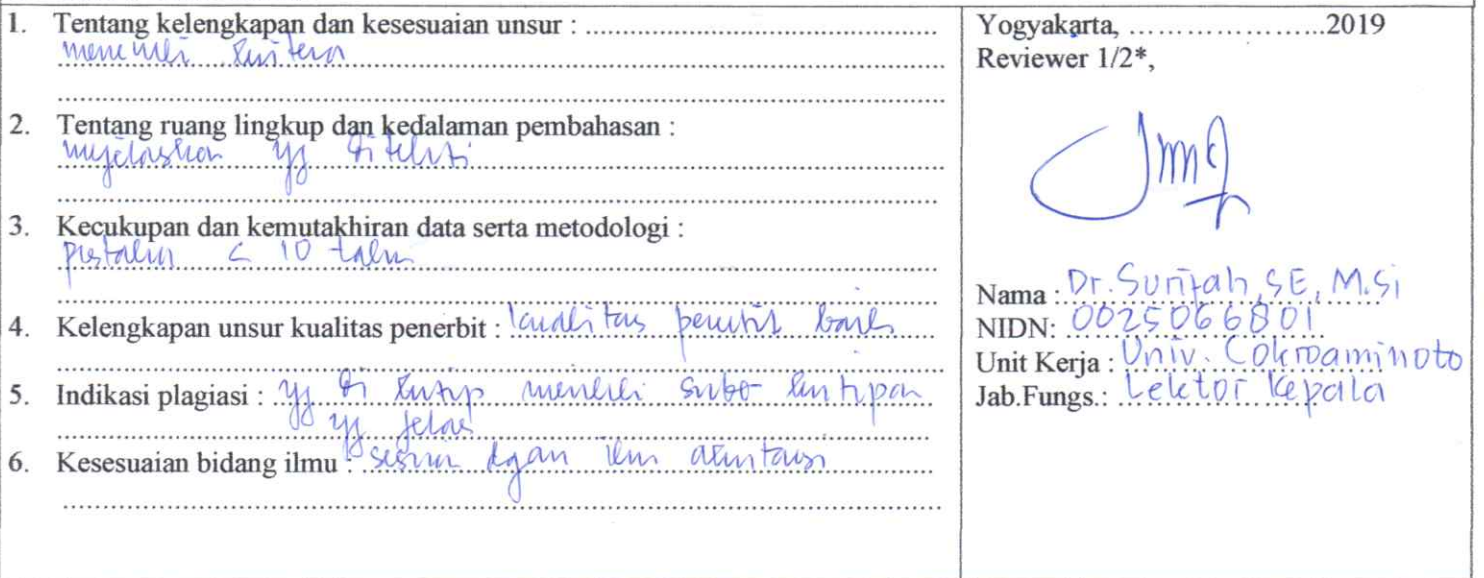 1. Tentang kelengkapan dan kesesuaian unsur : ..........
memenuhi kriteria
2. Tentang ruang lingkup dan kedalaman pembahasan :
yg diteliti
3. Kecukupan dan kemutakhiran data serta metodologi :
< 10
4. Kelengkapan unsur kualitas penerbit : kualitas penerbit baik
5. Indikasi plagiasi : yg di kutip memiliki kutipan
yg jelas
6. Kesesuaian bidang ilmu : sesuai dgan ilmu akuntansi
Yogyakarta, ..........2019
Reviewer 1/2*,
Nama : Dr. SE, M.Si
NIDN: 0025066801
Unit Kerja : Univ. Cokroaminoto
Jab.Fungs.: Lektor Kepala